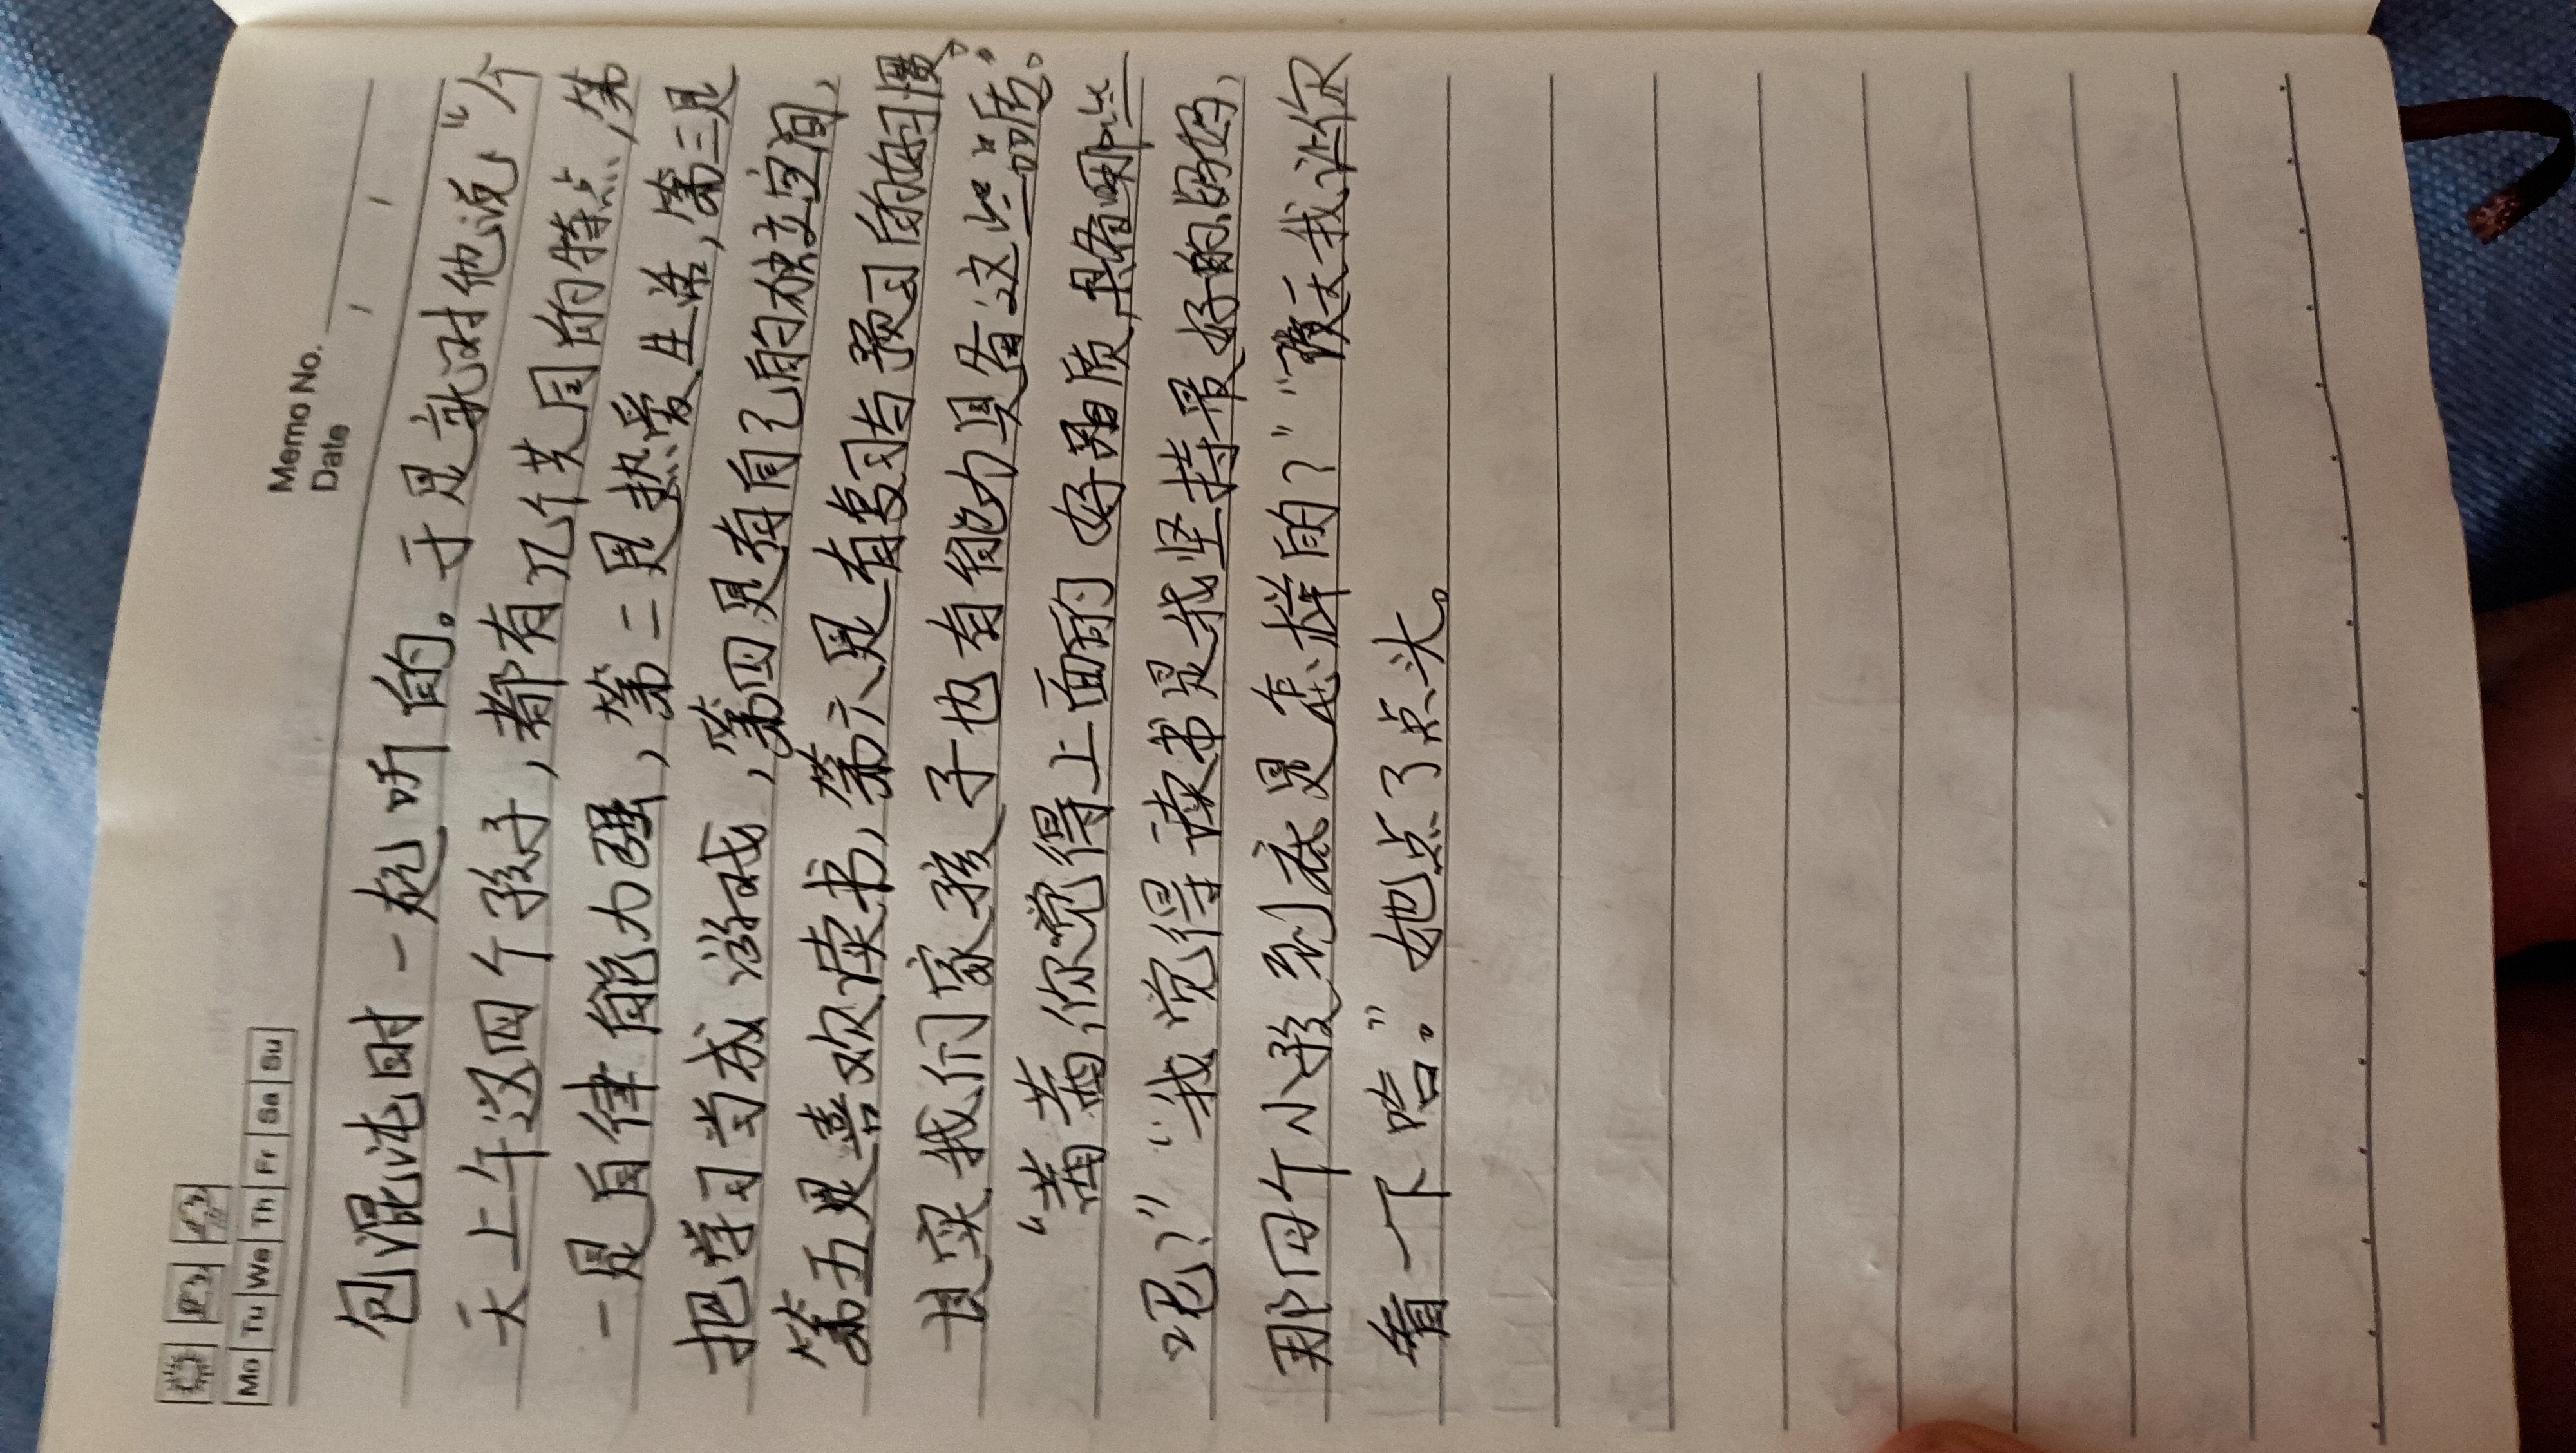 Memo No.
Date
Mo Tu We Th Fr Sa Su
包混沌时一起听的。于是就对他说"今
天上午这四个孩子,都有几个共同的特点,第
一是自律能力强,第二是热爱生活,第三是
把学习当成游戏,第四是有自己的独立空间,
第五是喜欢读书,第六是有复习与预习的好习惯。
其实我们家孩子也有能力具备这些品质。"
"茜茜,你觉得上面的好品质,具备哪些
呢?""我觉得读书是我坚持最好的的,
那四个小孩到底是怎样的?""改天我让你
看一下哈。"她点了点头。